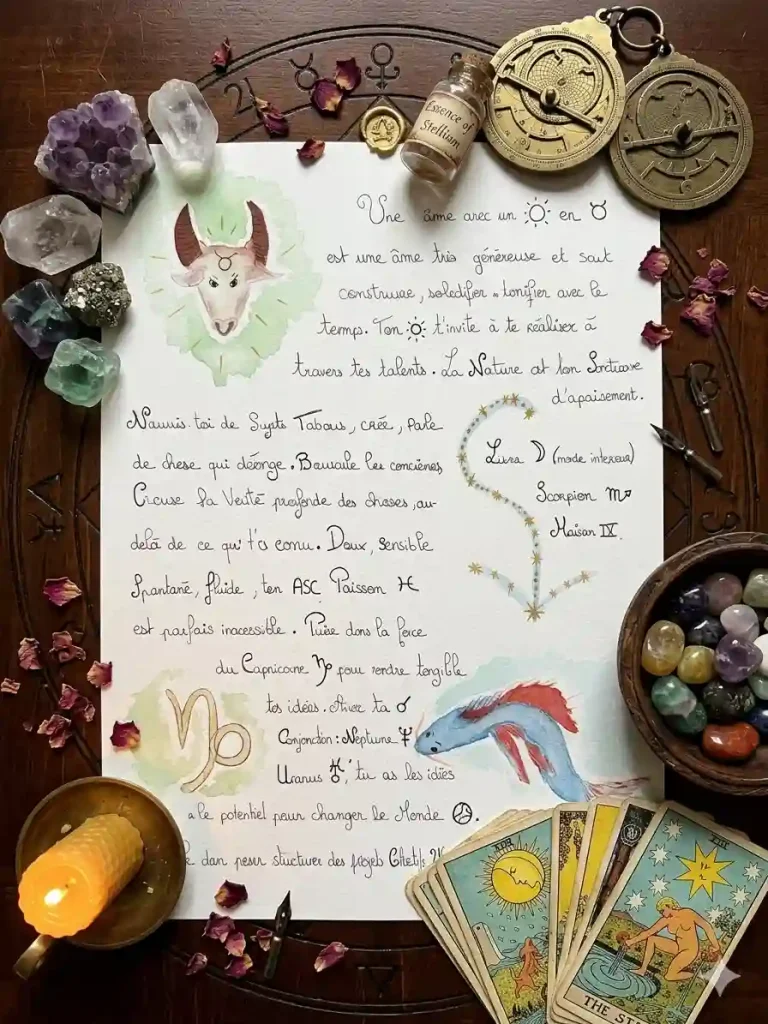 Essence of
Stellium
Une âme avec un ☉ en ♉
est une âme très généreuse et sait
construire, solidifier, tonifier avec le
temps. Ton ☉ t'invite à te réaliser à
travers tes talents. La Nature est ton
d'apaisement.
Nourris-toi de Sujets Tabous, crée, parle
de chose qui dérange. Bouscule les consciences
Creuse la Vérité profonde des choses, au-
delà de ce qui t'es connu. Doux, sensible
Spontané, fluide, ton ASC Poisson ♓
est parfois inacessible. Puise dans la force
du Capricorne ♑ pour rendre tangible
tes idées. Avec ta ☌
Conjonction : Neptune ♆
Uranus ♅, tu as les idées
a le potentiel pour changer le Monde
don pour structurer des projets
Luna ☽ (monde intérieur)
Scorpion ♏
Maison IV.
THE